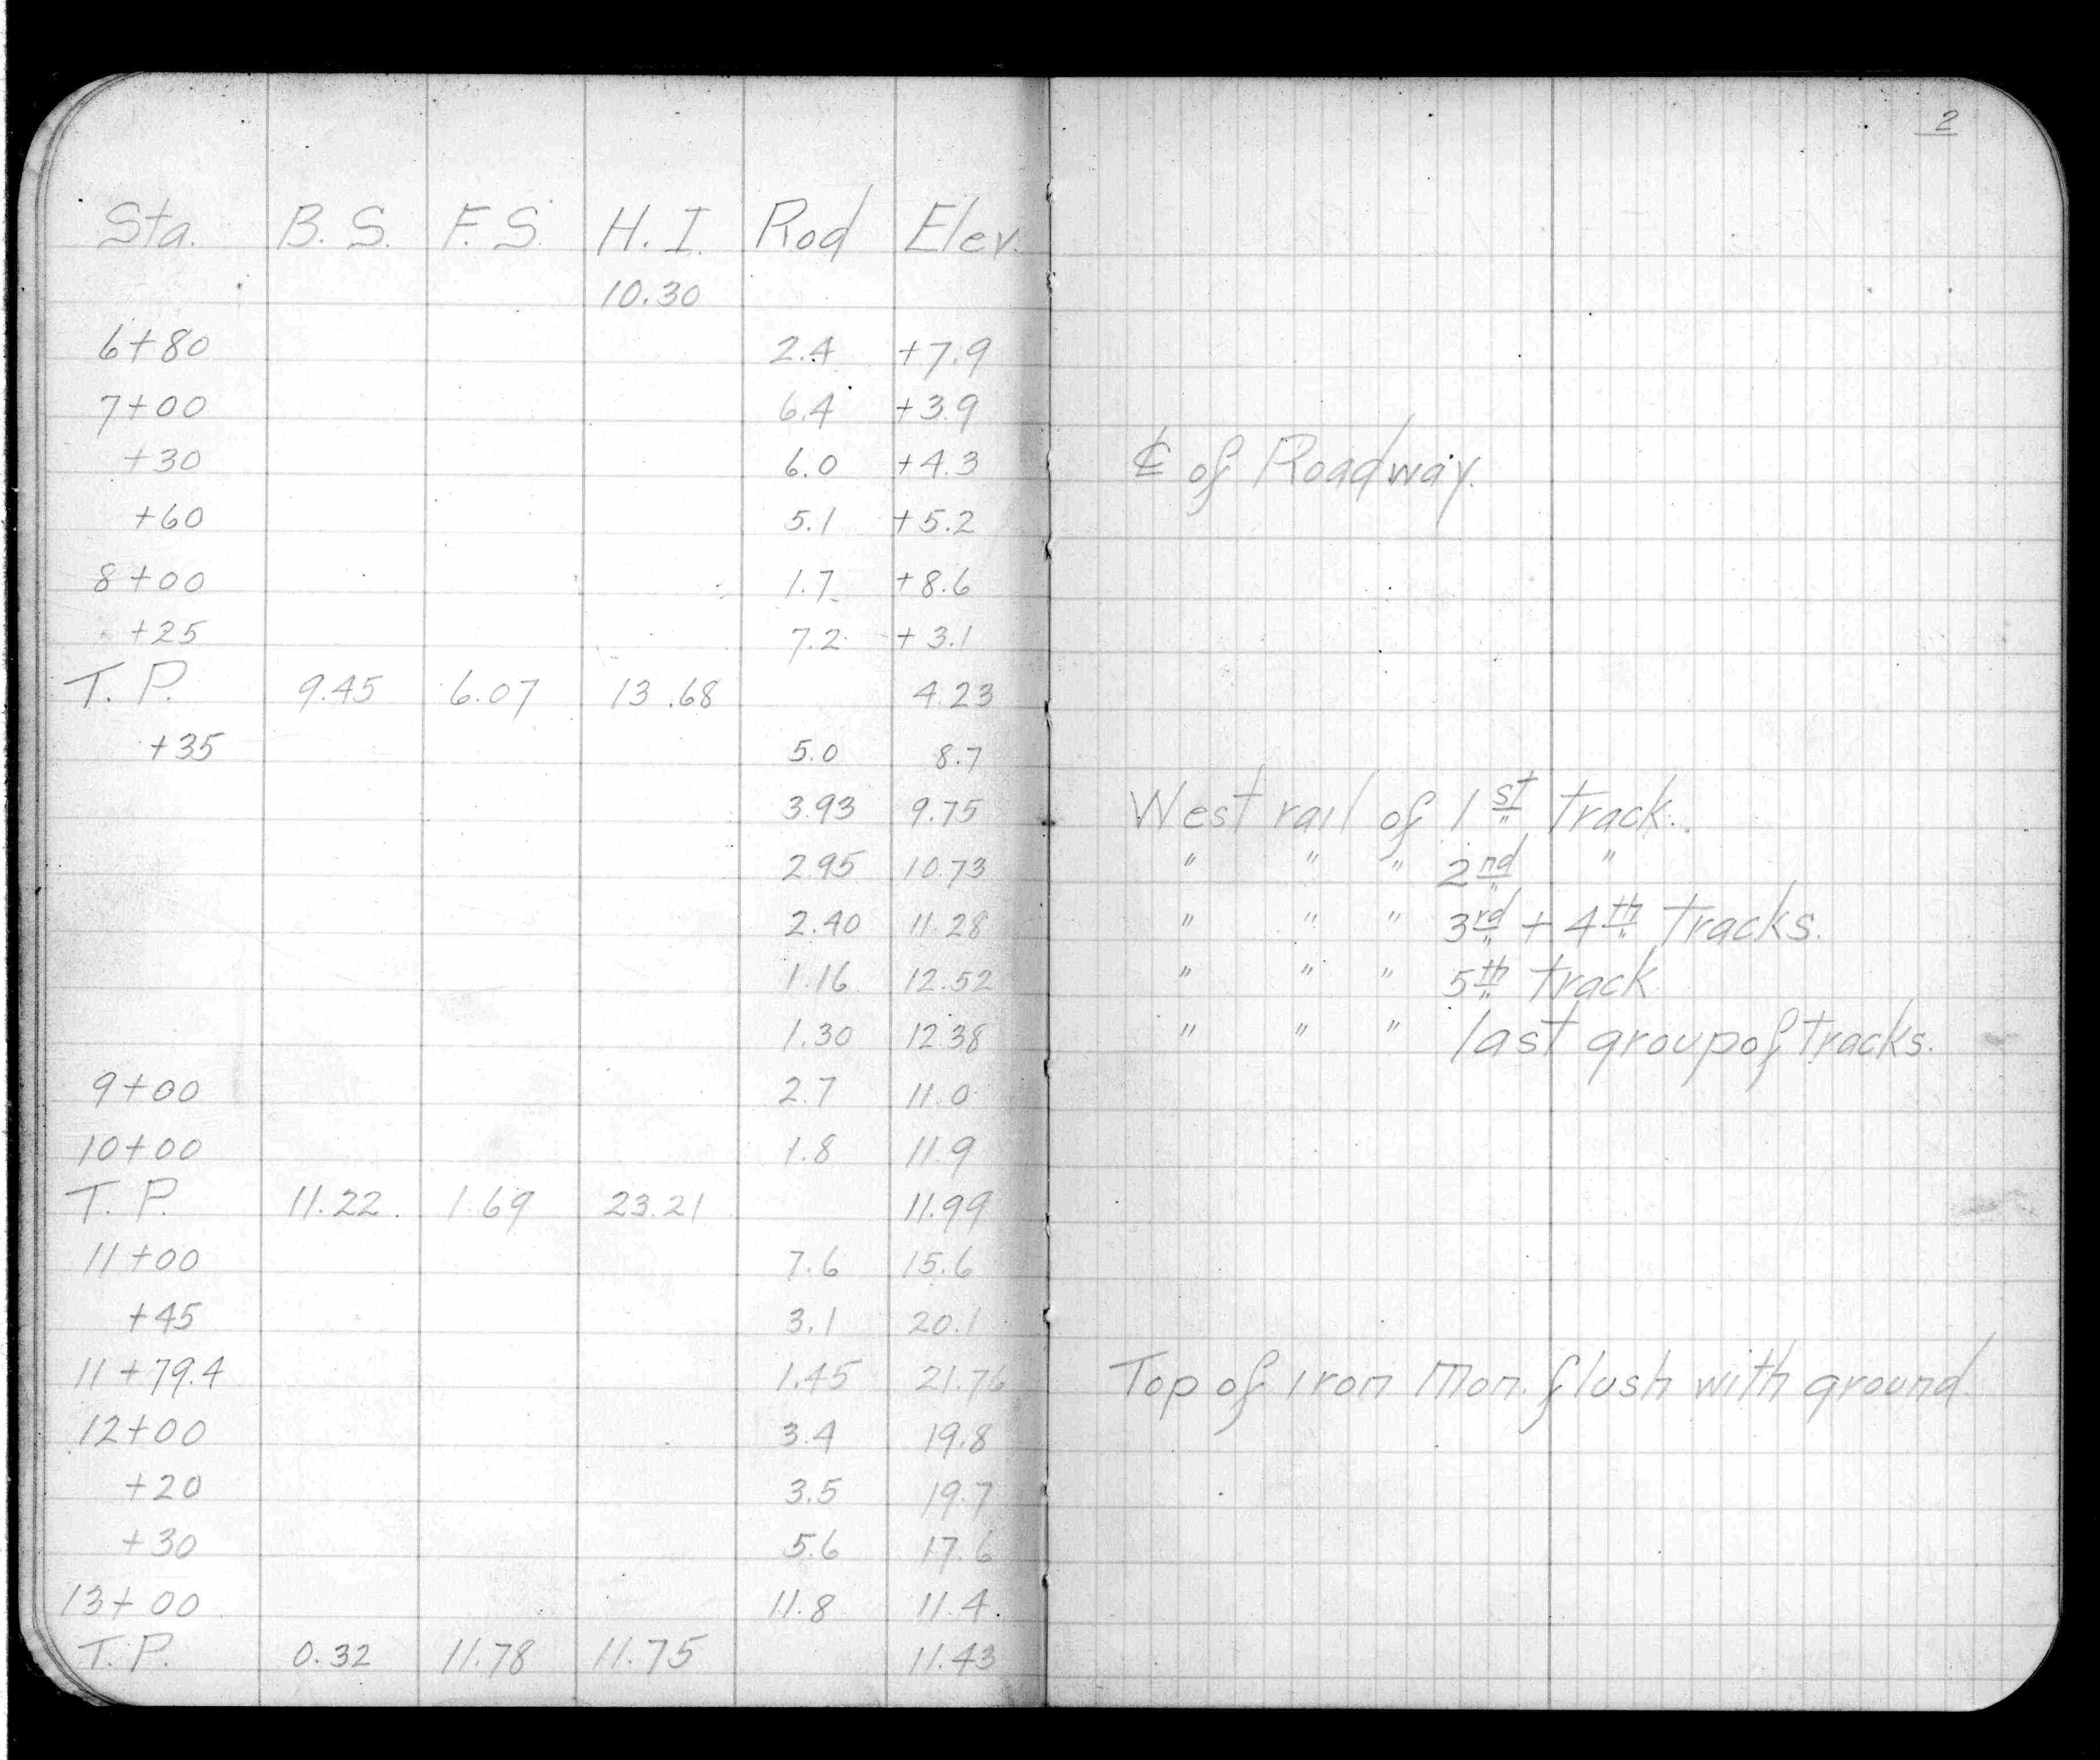 2
Sta. B.S. F.S. H.I. Rod Elev.
10.30
6+80 2.4 +7.9
7+00 6.4 +3.9
+30 6.0 +4.3 ℄ of Roadway.
+60 5.1 +5.2
8+00 1.7 +8.6
+25 7.2 +3.1
T.P. 9.45 6.07 13.68 4.23
+35 5.0 8.7
3.93 9.75 West rail of 1st track.
2.95 10.73 " " " 2nd "
2.40 11.28 " " " 3rd + 4th tracks.
1.16 12.52 " " " 5th track
1.30 12.38 " " " last group of tracks.
9+00 2.7 11.0
10+00 1.8 11.9
T.P. 11.22 1.69 23.21 11.99
11+00 7.6 15.6
+45 3.1 20.1
11+79.4 1.45 21.76 Top of Iron Mon. flush with ground
12+00 3.4 19.8
+20 3.5 19.7
+30 5.6 17.6
13+00 11.8 11.4
T.P. 0.32 11.78 11.75 11.43